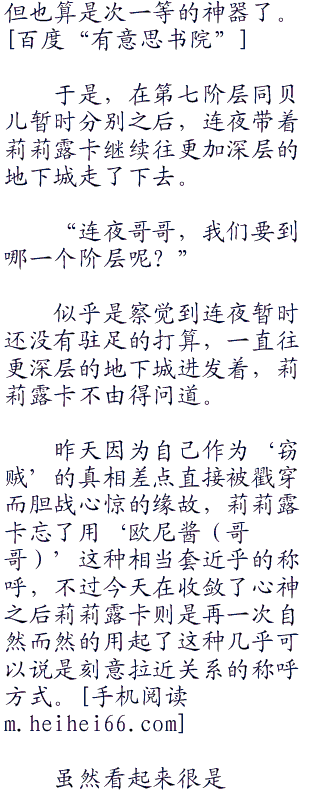 但也算是次一等的神器了。
[百度“有意思书院”]
于是，在第七阶层同贝
儿暂时分别之后，连夜带着
莉莉露卡继续往更加深层的
地下城走了下去。
“连夜哥哥，我们要到
哪一个阶层呢？”
似乎是察觉到连夜暂时
还没有驻足的打算，一直往
更深层的地下城进发着，莉
莉露卡不由得问道。
昨天因为自己作为‘窃
贼’的真相差点直接被戳穿
而胆战心惊的缘故，莉莉露
卡忘了用‘欧尼酱（哥
哥）’这种相当套近乎的称
呼，不过今天在收敛了心神
之后莉莉露卡则是再一次自
然而然的用起了这种几乎可
以说是刻意拉近关系的称呼
方式。[手机阅读
m.heihei66.com]
虽然看起来很是